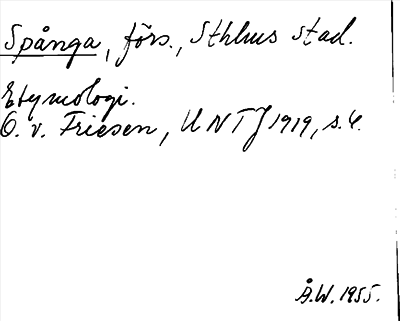 Spånga, förs., Sthlms stad.
Etymologi.
O. v. Friesen, UNTJ 1919, s. 6.
Å.W. 1955.